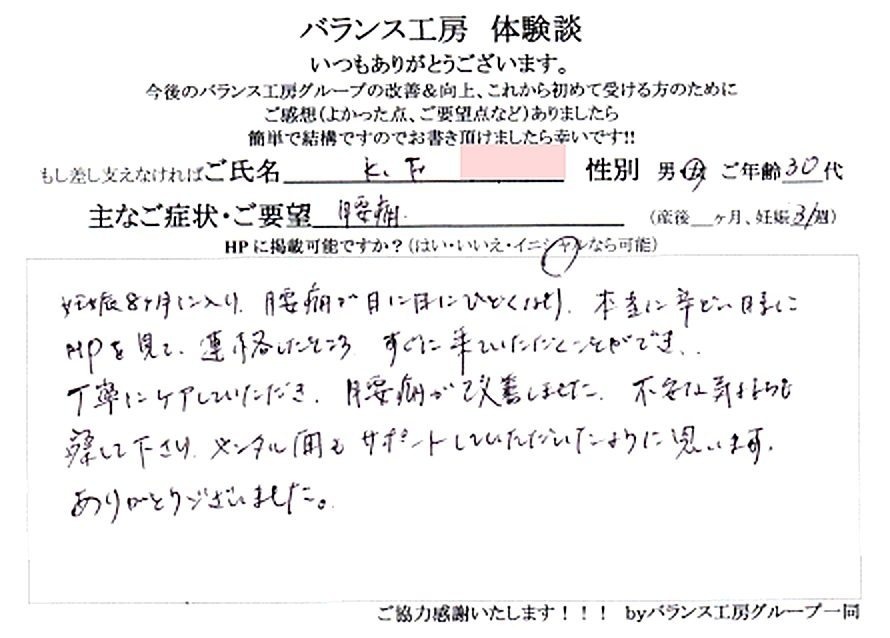 バランス工房 体験談
いつもありがとうございます。
今後のバランス工房グループの改善&向上、これから初めて受ける方のために
ご感想(よかった点、ご要望点など)ありましたら
簡単で結構ですのでお書き頂けましたら幸いです!!
もし差し支えなければご氏名 K. 性別 男・女 ご年齢 30代
主なご症状・ご要望 腰痛 (産後__ヶ月、妊娠31週)
HPに掲載可能ですか?(はい・いいえ・イニシャルなら可能)
妊娠8ヶ月に入り、腰痛が日に日にひどくなり、本当に辛い時に
HPを見て、連絡したところ すぐに来ていただくことができ、
丁寧にケアしていただき、腰痛が改善しました。不安な気持ちも
察して下さり、メンタル面も サポートしていただいたように思います。
ありがとうございました。
ご協力感謝いたします!!! byバランス工房グループ一同